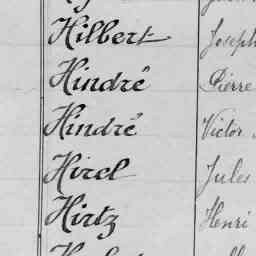 Hilbert Joseph
Hindré Pierre
Hindré Victor
Hirel Jules
Hirtz Henri